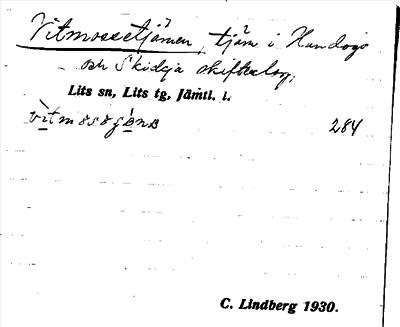 Vitmossetjärnen, tjärn i Handogs
och Skidgja skifteslag,
Lits sn, Lits tg, Jämtl. l.
284
C. Lindberg 1930.